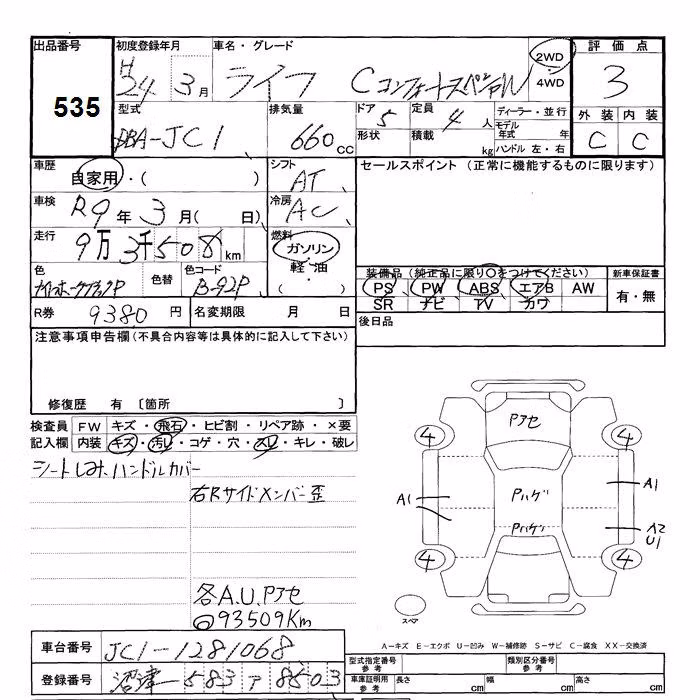 出品番号 初度登録年月 車名・グレード 2WD 評価点
535 H24 3月 ライフ Cコンフォートスペシャル 4WD 3
型式 排気量 ドア 定員 ディーラー・並行 外装 内装
DBA-JC1 660cc 5 4人 モデル年式 年 C C
形状 積載 kg ハンドル 左・右
車歴 自家用・( ) シフト AT セールスポイント (正常に機能するものに限ります)
車検 R9年3月( 日) 冷房 AC
走行 9万3千508km 燃料 ガソリン・軽油・( )
色 色替 色コード B-92P
装備品 (純正品に限り〇をつけてください) 新車保証書
PS PW ABS エアB AW 有・無
SR ナビ TV カワ
R券 9380円 名変期限 月 日 後日品
注意事項申告欄(不具合内容等は具体的に記入して下さい)
修復歴 有 〔箇所 〕
検査員 FW キズ・飛石・ヒビ割・リペア跡・×要
記入欄 内装 キズ・汚レ・コゲ・穴・スレ・キレ・破レ
シートしみ、ハンドルカバー
右Rサイドメンバー歪
各A.U.Pアセ
93509Km
Pアセ
4 4
A1 Pハゲ A1
Pハゲ A2
U1
4 4
スペア
A-キズ E-エクボ U-凹み W-補修跡 S-サビ C-腐食 XX-交換済
車台番号 JC1-1281068
型式指定番号 参考 類別区分番号 参考
登録番号 沼津 583 ア 8503
車庫証明用 参考 長さ cm 幅 cm 高さ cm